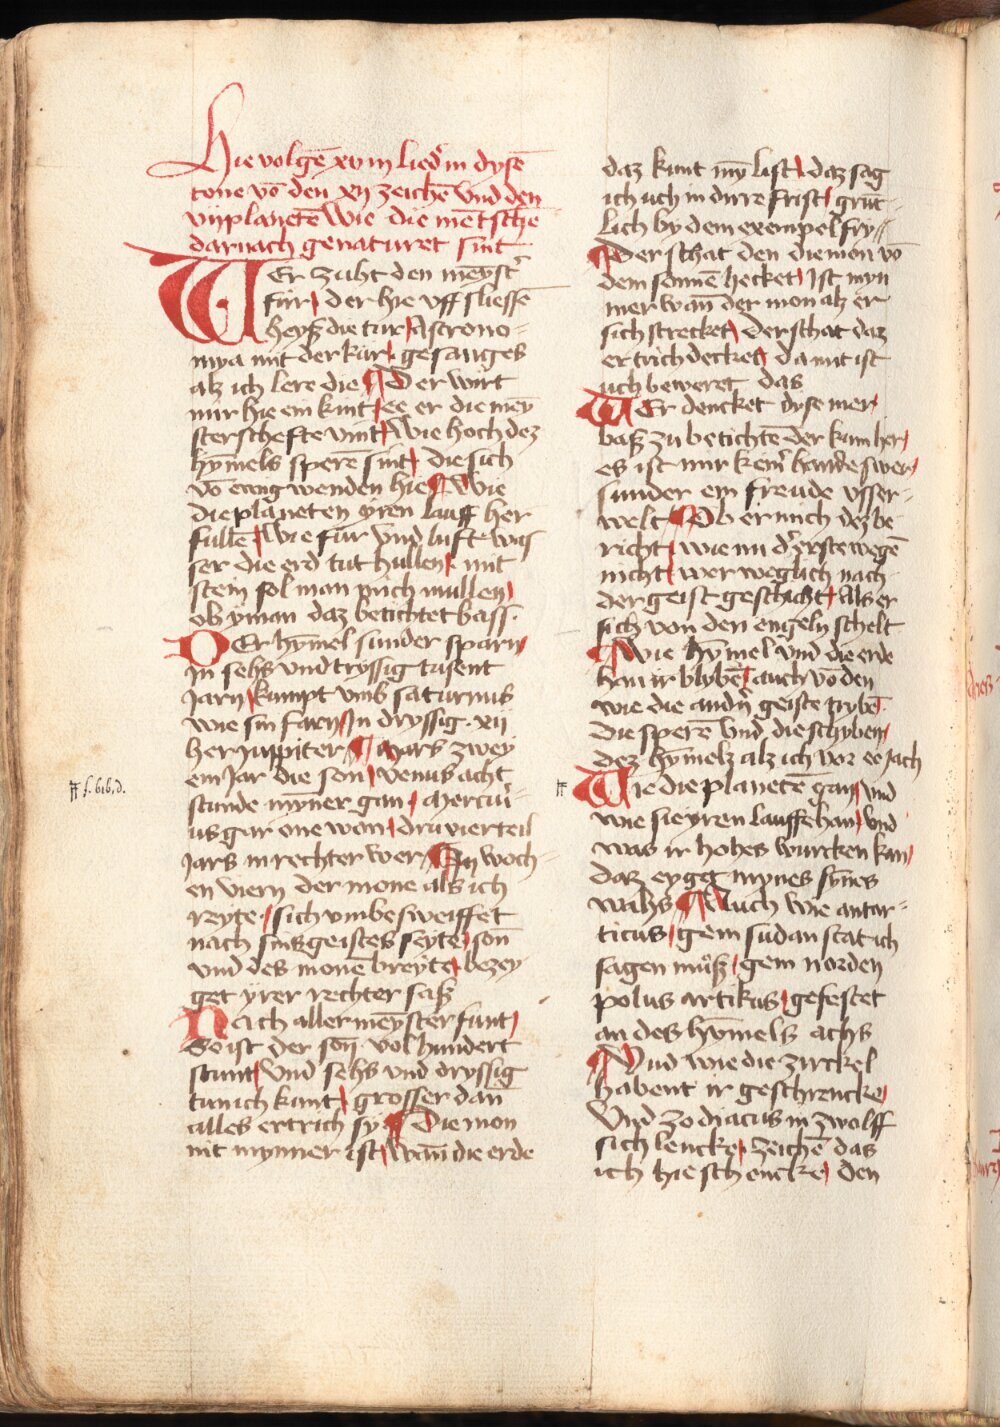 Hie volgē xviij lied̾ in dysē
tone vō den xij zeichē vnd den
vij planetē wie die mētschē
darnach genaturet sint
WEr zuht den meystˀ
für / der hie vff sliessē
heyß die tur / Astrono-
mya mit der kür / gesanges
alz ich lere die ¶ Der wirt
mir hie ein kint / ee er die mey
sterschefte vint / Wie hoch dez
hȳmels sperē sint / die sich
vō ewig wenden hie ¶ Wie
die planeten yren lauff her
fullē / Wie für vnd luft was
ser die erd tut hullen / mit
stein sol man mich mullen /
ob yman daz betichtet bass.
DEr hȳmel sunder sparn /
In sehs vnd tryssig tusent
Jarn / kumpt vmb saturnus
wie sin farn / In dryssig. xij
her Juppiter / ¶ Mars zwey
ein Jar die son / venus acht
stunde mynner gan / Mercuri
us gar one won / dru vierteil
Jars in rechter wer / ¶ In woch-
en viern der mone als ich
reyte / sich vmbesweiffet
nach sins geistes seyte / son
vnd des monē breyte / bezey
get yrer rechter saß
Nach aller meyster funt /
So ist der son vol hundert
stunt / Vnd sehs vnd dryssig
tun ich kunt / grosser dan
alles ertrich sy ¶ Die mon
nit mynner ist / Wan die erde
daz kunt my list / daz sag
ich uch in dirre frist / grūt-
lich by dem exempel fry //
¶ Der schat den die mon vō
dem sonnē hecket / Ist myn
mer wan der mon alz er
sich strecket / der schat daz
ertrich decket / da mit ist
uch beweret das
WEr dencket dyse mer /
baß zu betichtē der kum her /
es ist mir kein hande swer /
sunder ein freude vsser-
welt / ¶ Ob er mich dez be
richt / wie nu d̾ erste wegē
nicht / wer weglich nach
der geist geschicht / Als er
sich von den engeln schelt
¶ Wie hȳmel vnd die erde
han ir blybē / auch vō den
wie die andn̄ geiste trybē
Die sperē vnd die schyben /
dez hȳmelz alz ich vor ee Jach
WIe die planetē gan / vnd
wie sie yren lauffe han / vnd
was ir hohes wurcken kan /
daz eygg mynes synes
wahs ¶ Auch wie antar-
ticus / gem sudan stat ich
sagen muͦß / gem norden
polus artikus / gefestet
an des hȳmels achs
¶ Vnd wie die zirckel
habent ir geschrencke /
Vnd zodiacus in zwolff
sich lencke / zeichē das
ich hie schencke / den
# f. 616, d.
#